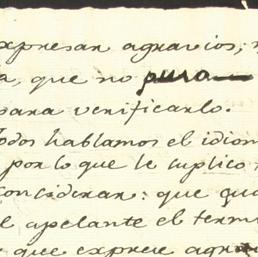 expresar agravios;
que no para
para verificarlo.
todos hablamos el idiom
por lo que le suplico
considerar: que qua
el apelante el term
que exprese agra